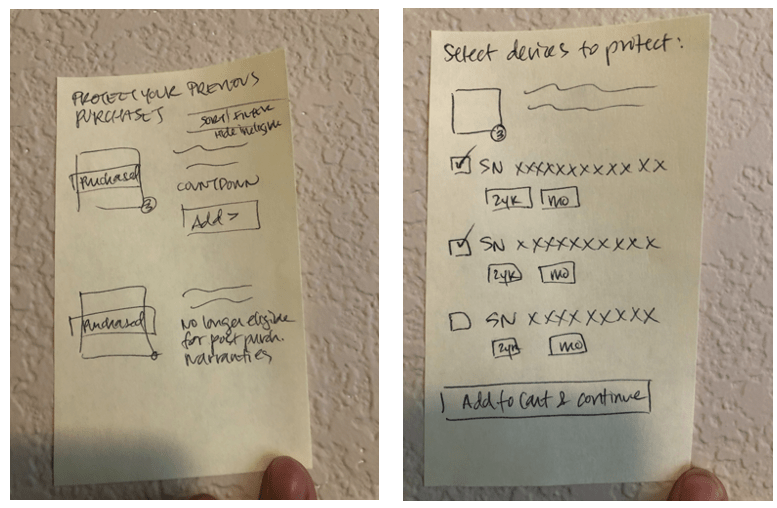 PROTECT YOUR PREVIOUS
PURCHASES
Sort/Filter
Hide ineligible
Purchased
3
COUNTDOWN
Add >
Purchased
No longer eligible
for post purch.
warranties
Select devices to protect:
3
SN XXXXXXXXXXX XX
2yr mo
SN XXXXXXXXXX
2yr mo
SN XXXX XXXXX
2yr mo
Add to cart & continue